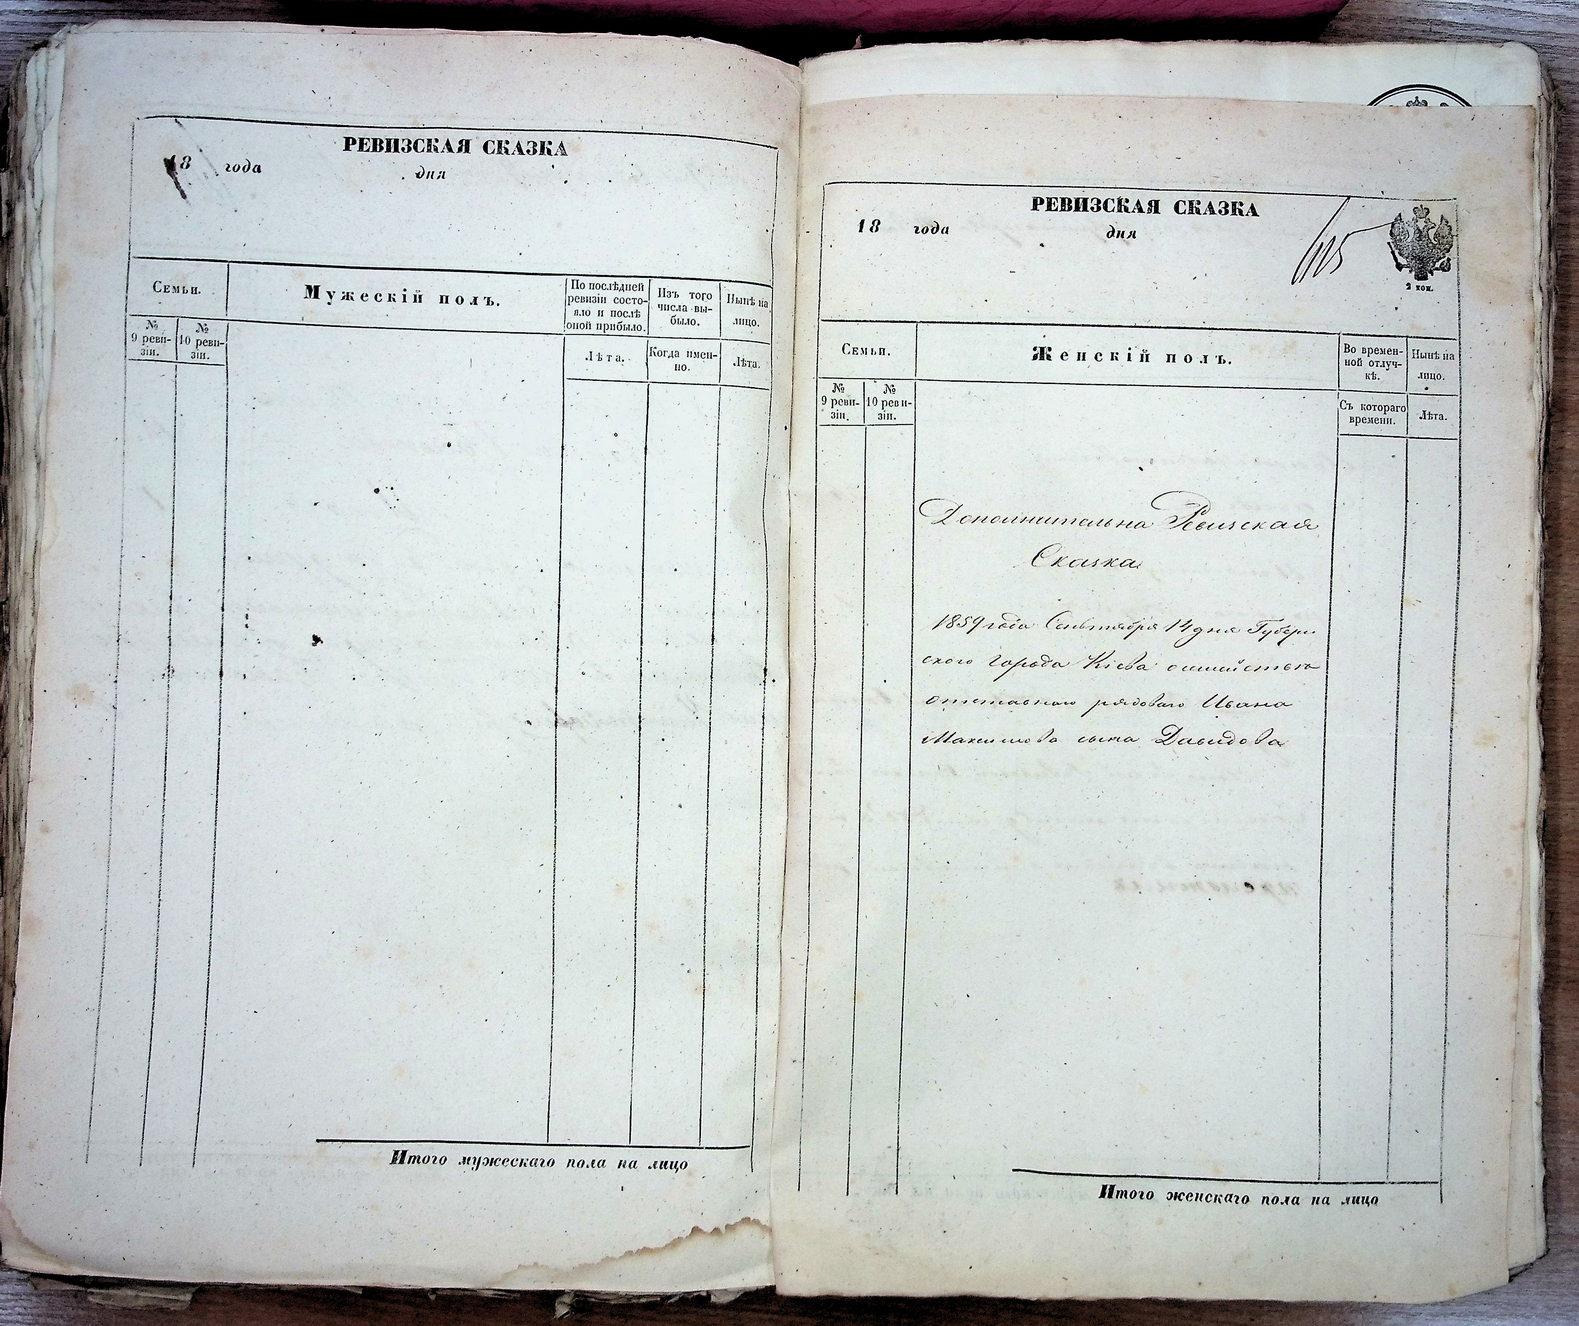 РЕВИЗСКАЯ СКАЗКА
18 года дня
Семьи.
Мужескій полъ.
По послѣдней
ревизіи состо-
яло и послѣ
оной прибыло.
Изъ того
числа вы-
было.
Нынѣ на
лицо.
№
9 реви-
зіи.
№
10 реви-
зіи.
Лѣта.
Когда имен-
но.
Лѣта.
Итого мужескаго пола на лицо
РЕВИЗСКАЯ СКАЗКА
18 года дня
2 коп.
Семьи.
Женскій полъ.
Во времен-
ной отлуч-
кѣ.
Нынѣ на
лицо.
№
9 реви-
зіи.
№
10 реви-
зіи.
Съ котораго
времени.
Лѣта.
Дополнительна Ревизская
Сказка
1859 года Сентября 14 дня Губерн
ского города Кіева о семействѣ
отставного рядового Ивана
Максимова сына Давидова
Итого женскаго пола на лицо